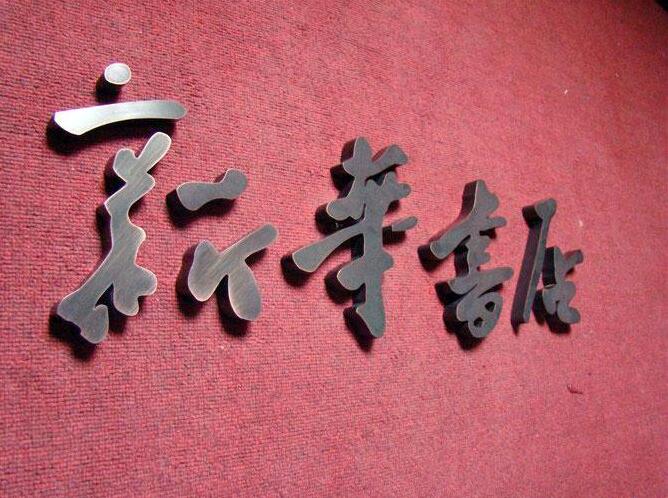 新華書店